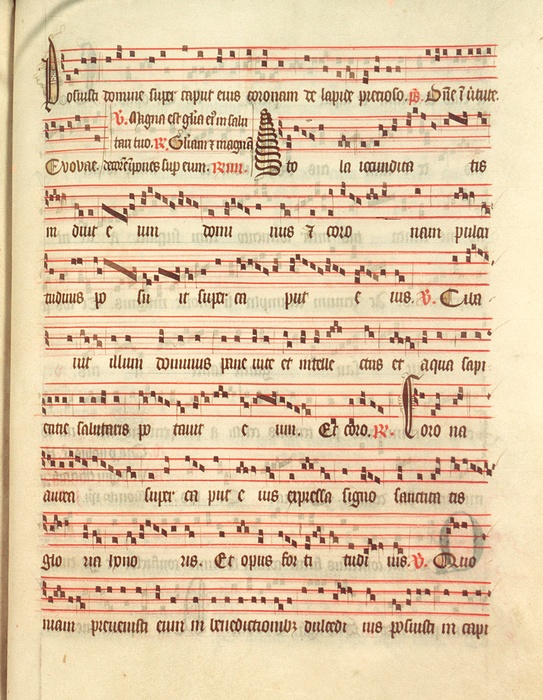 Posuisti domine super caput eius coronam de lapide precioso. ps. Dñe ĩ ũtute.
V. Magna est glia eꝰ in salu
tari tuo. R. Gliam ⁊ magnã
Evovae. decorẽ ĩpones sup eum. Rnm. Sto la iocundita tis
in duit e um domi nus ⁊ coro nam pulcri
tudinis po su it super ca put e ius. V. Ciba
uit illum dominus pane uite et intelle ctus et aqua sapi
entie salutaris po tauit e um. Et coro. R. Coro na
aurea super ca put e ius expressa signo sanctita tis
glo ria hono ris. Et opus for ti tudi nis. V. Quo
niam prevenisti eum in benedictionibꝫ dulcedi nis posuisti in capi